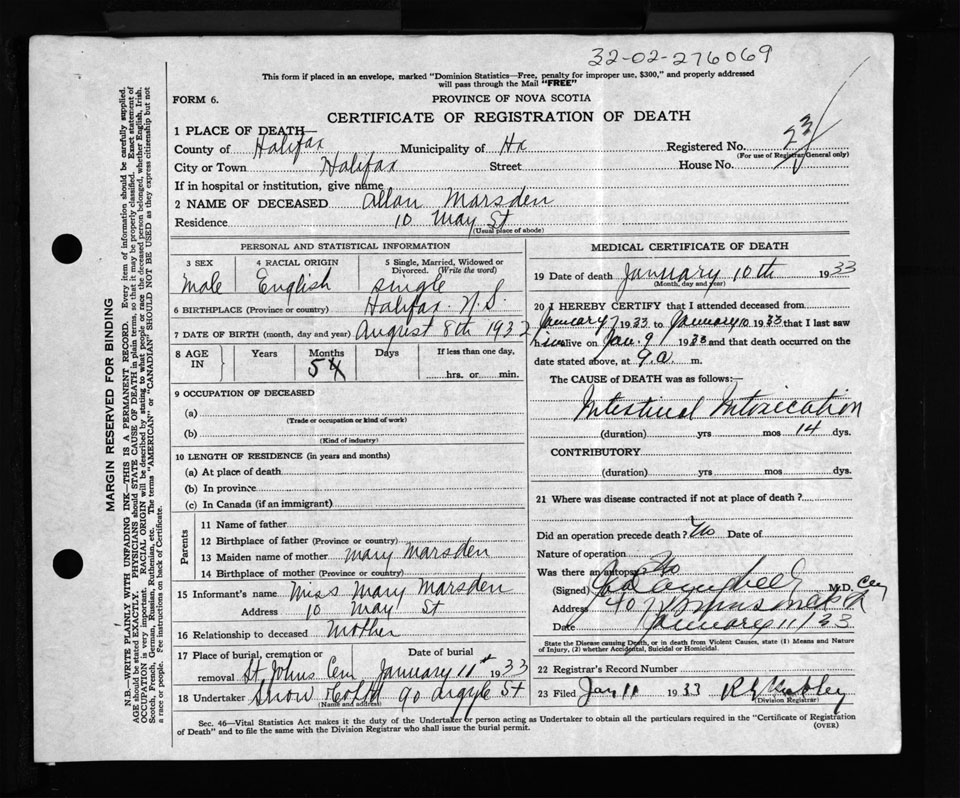 32-02-276069
This form if placed in an envelope, marked "Dominion Statistics—Free, penalty for improper use, $300," and properly addressed
will pass through the Mail "FREE"
FORM 6.
PROVINCE OF NOVA SCOTIA
CERTIFICATE OF REGISTRATION OF DEATH
1 PLACE OF DEATH—
County of Halifax Municipality of Hx Registered No. 23
(For use of Registrar General only)
City or Town Halifax Street House No.
If in hospital or institution, give name
2 NAME OF DECEASED Allan Marsden
Residence 10 May St
(Usual place of abode)
PERSONAL AND STATISTICAL INFORMATION
3 SEX
Male
4 RACIAL ORIGIN
English
5 Single, Married, Widowed or
Divorced. (Write the word)
single
6 BIRTHPLACE (Province or country) Halifax N.S.
7 DATE OF BIRTH (month, day and year) August 8th 1932
8 AGE IN
Years Months Days If less than one day,
5
hrs. or min.
9 OCCUPATION OF DECEASED
(a)
(Trade or occupation or kind of work)
(b)
(Kind of industry)
10 LENGTH OF RESIDENCE (in years and months)
(a) At place of death
(b) In province
(c) In Canada (if an immigrant)
Parents
11 Name of father
12 Birthplace of father (Province or country)
13 Maiden name of mother Mary Marsden
14 Birthplace of mother (Province or country)
15 Informant's name Miss Mary Marsden
Address 10 May St
16 Relationship to deceased Mother
17 Place of burial, cremation or Date of burial
removal St Johns Cem January 11st 1933
18 Undertaker Snow & Co Ltd 90 Argyle St
(Name and address)
MEDICAL CERTIFICATE OF DEATH
19 Date of death January 10th 1933
(Month, day and year)
20 I HEREBY CERTIFY that I attended deceased from
January 7 1933 to January 10 1933 that I last saw
him alive on Jan. 9 1933 and that death occurred on the
date stated above, at 9 a. m.
The CAUSE of DEATH was as follows:—
Intestinal Intoxication
(duration) yrs mos 14 dys.
CONTRIBUTORY
(duration) yrs. mos. dys.
21 Where was disease contracted if not at place of death?
Did an operation precede death? No Date of
Nature of operation
Was there an autopsy No
(Signed) Campbell M.D.
Address 40
Date January 11/33
State the Disease causing Death, or in death from Violent Causes, state (1) Means and Nature
of Injury, (2) whether Accidental, Suicidal or Homicidal.
22 Registrar's Record Number
23 Filed Jan 11 1933
(Division Registrar)
Sec. 46—Vital Statistics Act makes it the duty of the Undertaker or person acting as Undertaker to obtain all the particulars required in the "Certificate of Registration
of Death" and to file the same with the Division Registrar who shall issue the burial permit.
(OVER)
MARGIN RESERVED FOR BINDING
N.B.—WRITE PLAINLY WITH UNFADING INK—THIS IS A PERMANENT RECORD. Every item of information should be carefully supplied.
AGE should be stated EXACTLY. PHYSICIANS should STATE CAUSE OF DEATH in plain terms, so that it may be properly classified. Exact statement of
OCCUPATION is very important. RACIAL ORIGIN will be described by stating to what people or race the deceased person belonged, whether English, Irish,
Scotch, French, German, Russian, Ruthenian, etc. The terms "AMERICAN" or "CANADIAN" SHOULD NOT BE USED as they express citizenship but not
a race or people. See instructions on back of Certificate.